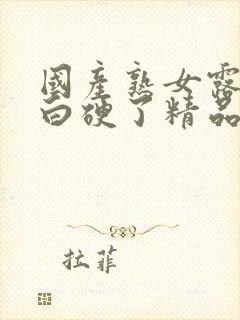 國產熟女露
白硬了精品
拉菲